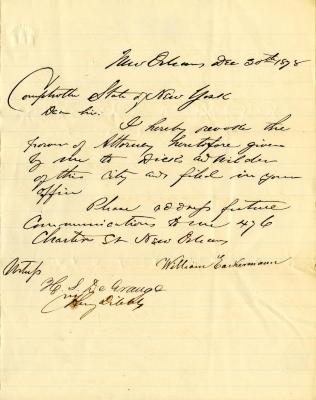 New Orleans Dec 30th 1878
Comptroller State of New York
Dear Sir.
I hereby revoke the
power of Attorney heretofore given
by me to Dick
of this City and filed in your
office
Please address future
Communications to me 476
Chartres St New Orleans
William Eackermann
Witness
H. S. De Grange